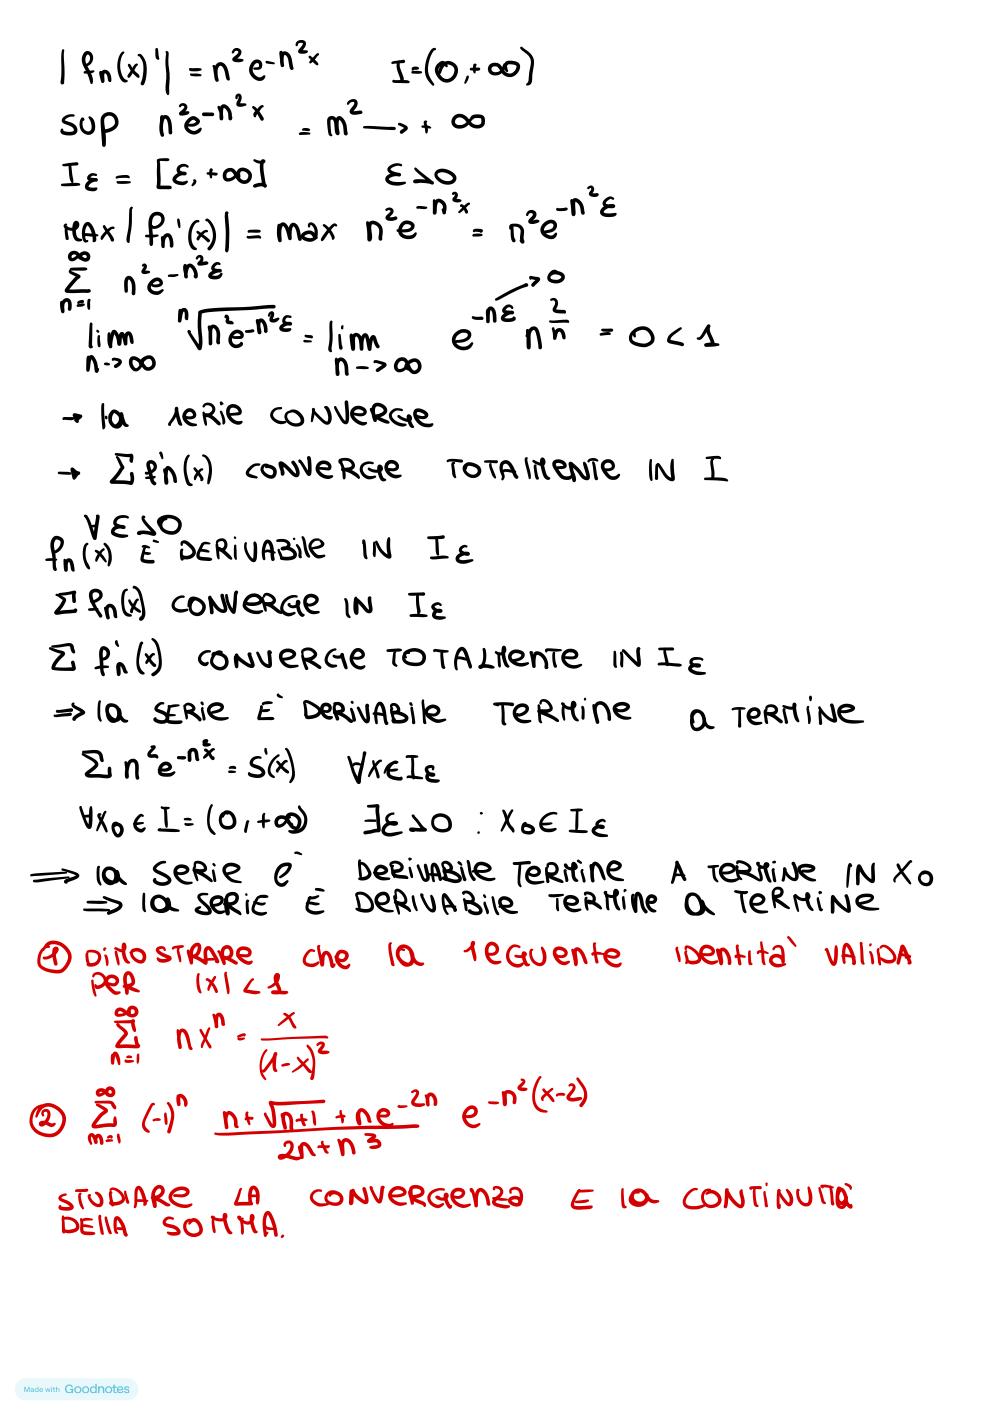 |fn(x)'| = n²e^-n²x I=(0,+∞)
sup n²e^-n²x = m² → + ∞
Iε = [ε,+∞] ε>0
MAX |fn'(x)| = max n²e^-n²x = n²e^-n²ε
∞∑n=1 n²e^-n²ε
lim n->∞ ⁿ√n²e^-n²ε = lim n->∞ e^-nε → 0 n^2/n = 0 < 1
→ la serie CONVERGE
→ ∑ f'n(x) CONVERGE TOTALMENTE IN I
∀ ε>0
fn(x) È DERIVABILE IN Iε
∑ fn(x) CONVERGE IN Iε
∑ f'n(x) CONVERGE TOTALMENTE IN Iε
=> la SERIE È DERIVABILE TERMINE a TERMINE
∑ n²e^-n²x = S'(x) ∀x∈Iε
∀x0 ∈ I = (0,+∞) ∃ε>0 : x0 ∈ Iε
=> la SERIE è DERIVABILE TERMINE A TERMINE IN X0
=> la SERIE È DERIVABILE TERMINE a TERMINE
① DIMOSTRARE che la seguente identità VALIDA
PER |x| < 1
∞∑n=1 n x^n = x/(1-x)²
② ∞∑m=1 (-1)^n n+√n+1 + ne^-2n / 2n+n³ e^-n²(x-2)
STUDIARE LA CONVERGENZA E la CONTINUITÀ
DELLA SOMMA.
Made with Goodnotes